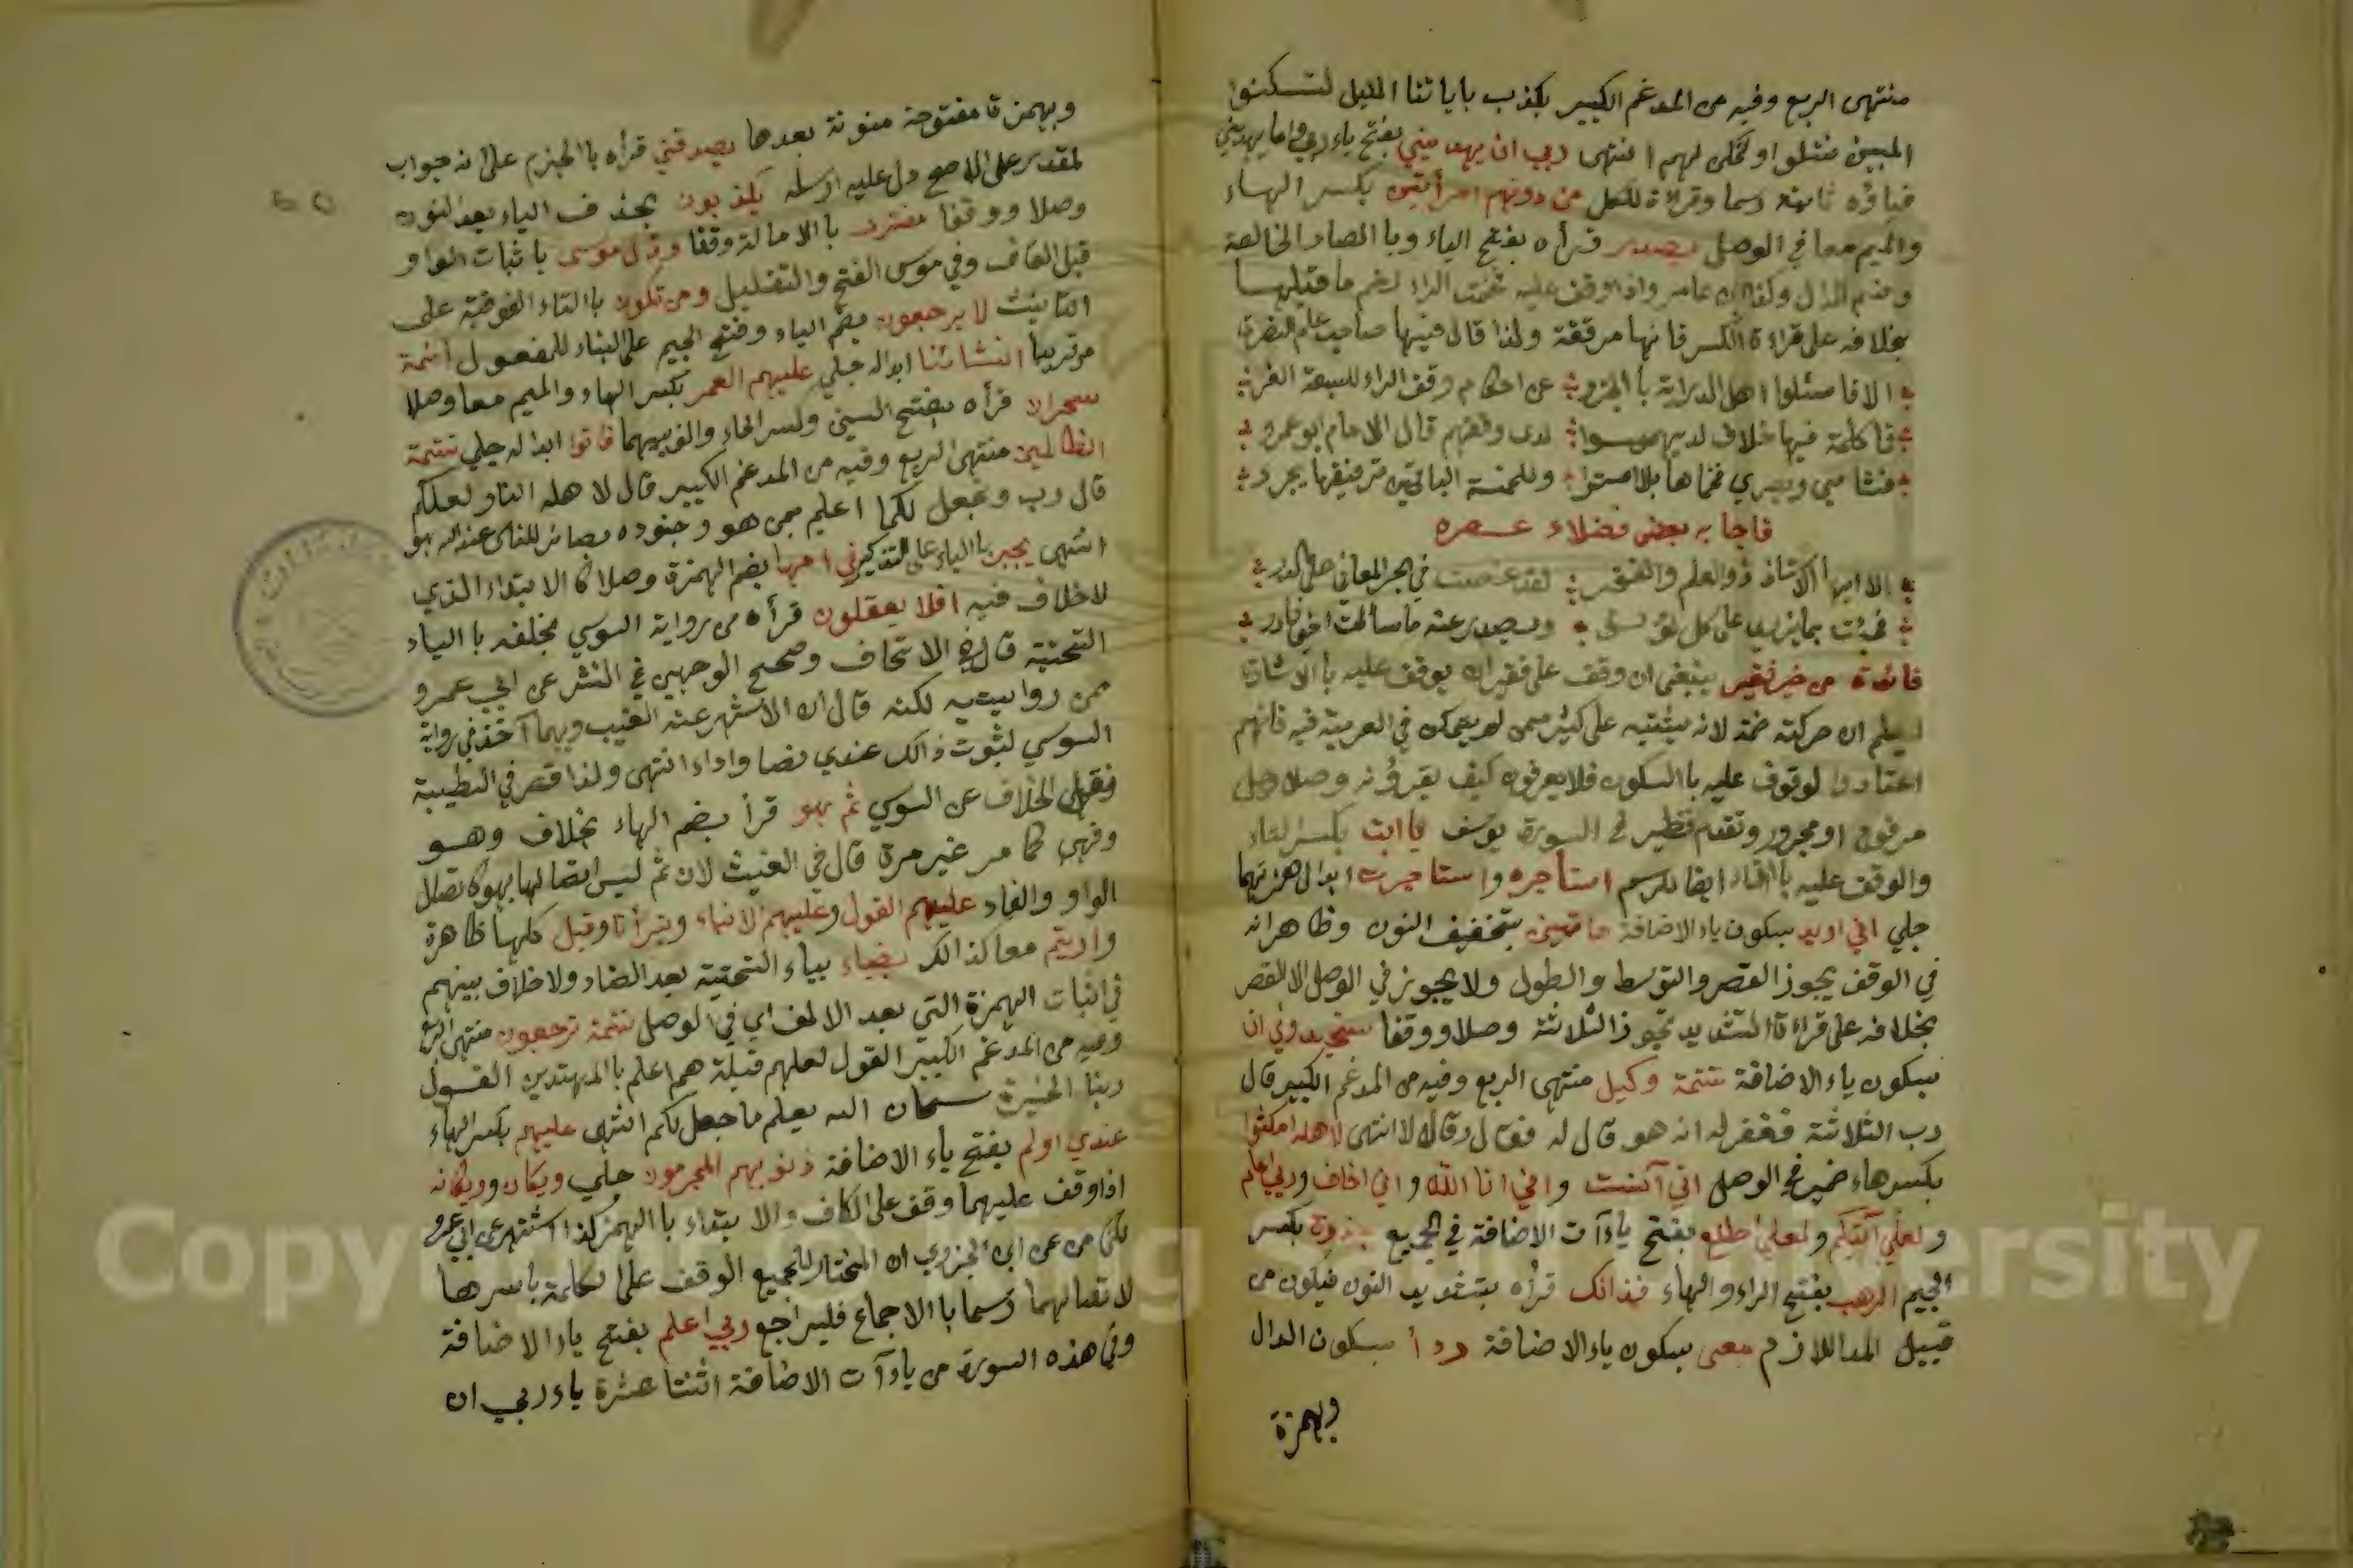 منتهى الربع وفيه من المدغم الكبير يكذب باياتنا الليل لتسكنوا
المبين نتلوا ونمكن لهم انتهى ربي ان يهديني بفتح ياء ربي واما يهديني
فياؤه ثابتة رسما وقراءة للكل من دونهم امرأتين بكسر الهاء
والميم معا في الوصل يصدر قرأه بفتح الياء وبا الصاد الخالصة
وضم الدال وكذا ابن عامر واذا وقف عليه فخمت الراء لضم ما قبلها
بخلافه على قراءة الكسر فانها مرققة ولذا قال فيها صاحب علم النصرة
الا فاسئلوا اهل الدراية بالجزو عن احكام وقف الراء للسبعة الغر
فما كلمة فيها خلاف لديهم سوا لدى وقفهم قال الامام ابو عمرو
فشامي وبصري فخماها بلا امترا وللخمسة الباقين ترقيقها يجر
فاجابه بعض فضلاء عصره
الا ايها الاستاذ ذوالعلم والفخر لقد غصت في بحر المعاني على الدر
فجئت بما يزيد على كل لؤلؤ ويصدر عنه ما سألت اخي فادر
فائدة من خير فقير ينبغي ان وقف على فقير ان يوقف عليه با الاشارة
ليعلم ان حركته ضمة لانه يشتبه على كثير ممن لم يمكن في العربية فيه فانهم
اعتادوا لوقوف عليه با السكون فلا يعرفون كيف يقرؤنه وصلا هل
مرفوع او مجرور وتقدم نظير في السورة يوسف يا ابت بكسر التاء
والوقف عليه با التاء اتباعا للرسم استأجره واستأجرت ابدال همزتهما
جلي اني اريد بسكون ياء الاضافة هاتين بتخفيف النون وظاهرانه
في الوقف يجوز القصر والتوسط والطول ولا يجوز في الوصل الا القصر
بخلافه على قراءة التشديد تجوز الثلاثة وصلا ووقفا ستجدوني ان
بسكون ياء الاضافة تتمة وكيل منتهى الربع وفيه من المدغم الكبير قال
رب الثلاثة فغفر له انه هو قال له فقال رب قال لا انتهى لاهله امكثوا
بكسر هاء ضمير في الوصل اني آنست واني انا الله واني اخاف وربي اعلم
ولعلي آتيكم ولعلي اطلع بفتح ياءآت الاضافة في الجميع جذوة بكسر
الجيم الرهب بفتح الراء والهاء فذانك قرأه بتشديد النون فيكون من
قبيل المد اللازم معي بسكون ياء الاضافة ردأ بسكون الدال
وبهمزة
وبهمزة مفتوحة منونة بعدها يصدقني قرأه با الجزم على انه جواب
لمقدر على الاصح دل عليه ارسله يكذبون بحذف الياء بعد النون
وصلا ووقفا مفترى با الامالة وقفا وقال موسى با ثبات الواو
قبل القاف وفي موسى الفتح والتقليل ومن تكون با التاء الفوقية على
التانيث لا يرجعون بضم الياء وفتح الجيم على البناء للمفعول ائمة
مر قريبا انشأنا ابداله جلي عليهم العمر بكسر الهاء والميم معا وصلا
سحران قرأه بفتح السين وكسر الحاء والف بينهما فاتوا ابداله جلي تتمة
الظالمين منتهى الربع وفيه من المدغم الكبير قال لاهله النار لعلكم
قال رب ونجعل لكما اعلم بمن هو وجنوده بصائر للناس عند الله هو
انتهى يجبى با الياء على التذكير في امها بضم الهمزة وصلا كا الابتداء الذي
لا خلاف فيه افلا يعقلون قرأه من رواية السوسي بخلفه با الياء
التحتية قال في الاتحاف وصحح الوجهين في النشر عن ابي عمرو
من روايتيه لكنه قال ان الاشهر عنه الغيب وبهما آخذ في رواية
السوسي لثبوت ذالك عندي نصا واداء انتهى ولذا قصر في الطيبة
نقل الخلاف عن السوسي ثم هو قرأ بضم الهاء بخلاف وهو
وفهي كما مر غير مرة قال في الغيث لان ثم ليس اتصالها بهو كا تصال
الواو والفاء عليهم القول وعليهم الانباء وتبرأنا وقيل كلها ظاهرة
وارءيتم معا كذالك بضياء بياء التحتية بعد الضاد ولا خلاف بينهم
في اثبات الهمزة التي بعد الالف اي في الوصل تتمة ترجعون منتهى الربع
وفيه من المدغم الكبير القول لعلهم قبله هم اعلم با المهتدين القول
ربنا الخيرة سبحان الله يعلم ما جعل لكم انتهى عليهم بكسر الهاء
عندي اولم بفتح ياء الاضافة ذنوبهم المجرمون جلي ويكان وويكانه
اذا وقف عليهما وقف على الكاف والا بتداء با الهمز كذا اشتهر عن ابي عمرو
لكن من عن ابن الجزري ان المختار للجميع الوقف على الكلمة باسرها
لاتصالهما رسما با الاجماع فليراجع ربي اعلم بفتح ياء الاضافة
وفي هذه السورة من ياءآت الاضافة اثنتا عشرة ياء ربي ان